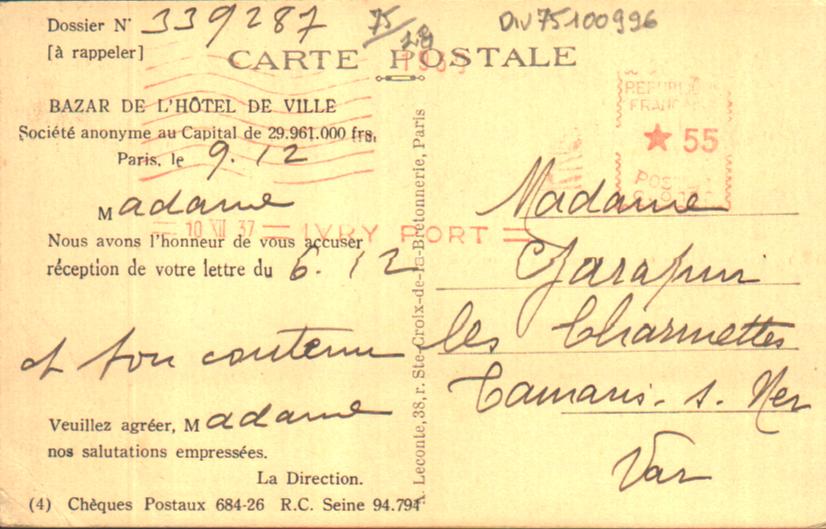 Dossier N° 339287
[à rappeler]
75/28
Div75100996
CARTE POSTALE
BAZAR DE L'HÔTEL DE VILLE
Société anonyme au Capital de 29.961.000 frs.
Paris, le 9.12
Madame
10 XII 37 IVRY PORT
Nous avons l'honneur de vous accuser
réception de votre lettre du 6.12
et son contenu
Veuillez agréer, Madame
nos salutations empressées.
La Direction.
(4) Chèques Postaux 684-26 R.C. Seine 94.794
A. Leconte, 38, r. Ste-Croix-de-la-Bretonnerie, Paris
REPUBLIQUE
FRANÇAISE
★ 55
POS
Madame
les Charmettes
Tamaris. s. Mer
Var